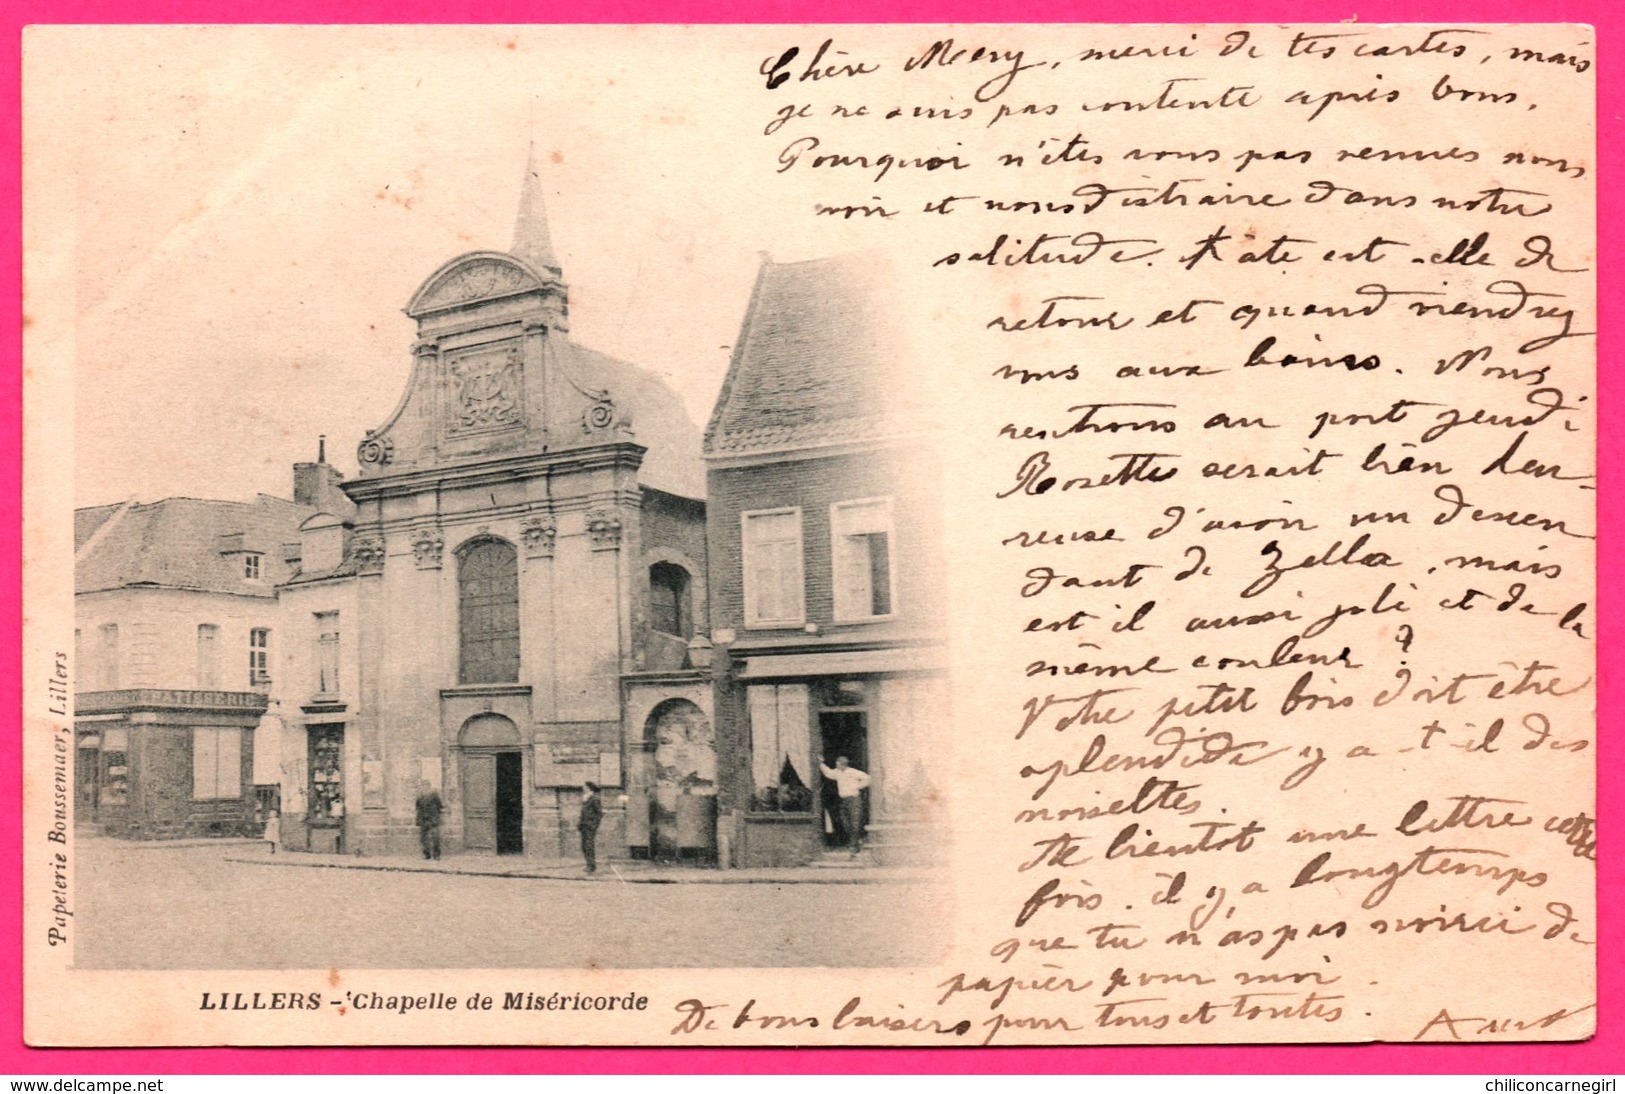 Chère Mery, merci de tes cartes, mais
je ne suis pas contente après vous.
Pourquoi n'êtes vous pas venues nous
voir et nous distraire dans notre
solitude. Kate est-elle de
retour et quand viendrez
vous aux bains. Nous
rentrons au port jeudi
Rosette serait bien heu-
reuse d'avoir un descen
dant de Zella, mais
est il aussi joli et de la
même couleur ?
Votre petit bois doit être
splendide y a-t-il des
noisettes.
A bientot une lettre cette
fois. il y a longtemps
que tu n'as pas noirci de
papier pour moi.
De bons baisers pour tous et toutes.
PATISSERIE
Papeterie Boussemaer, Lillers
LILLERS - Chapelle de Miséricorde
www.delcampe.net
chiliconcarnegirl